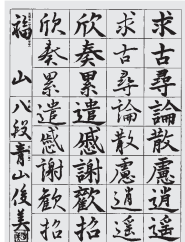 求古尋論散慮逍遥
求古尋論散慮逍遥
欣奏累遣慼謝歡招
欣奏累遣慼謝歓招
福山 八段 青山俊美